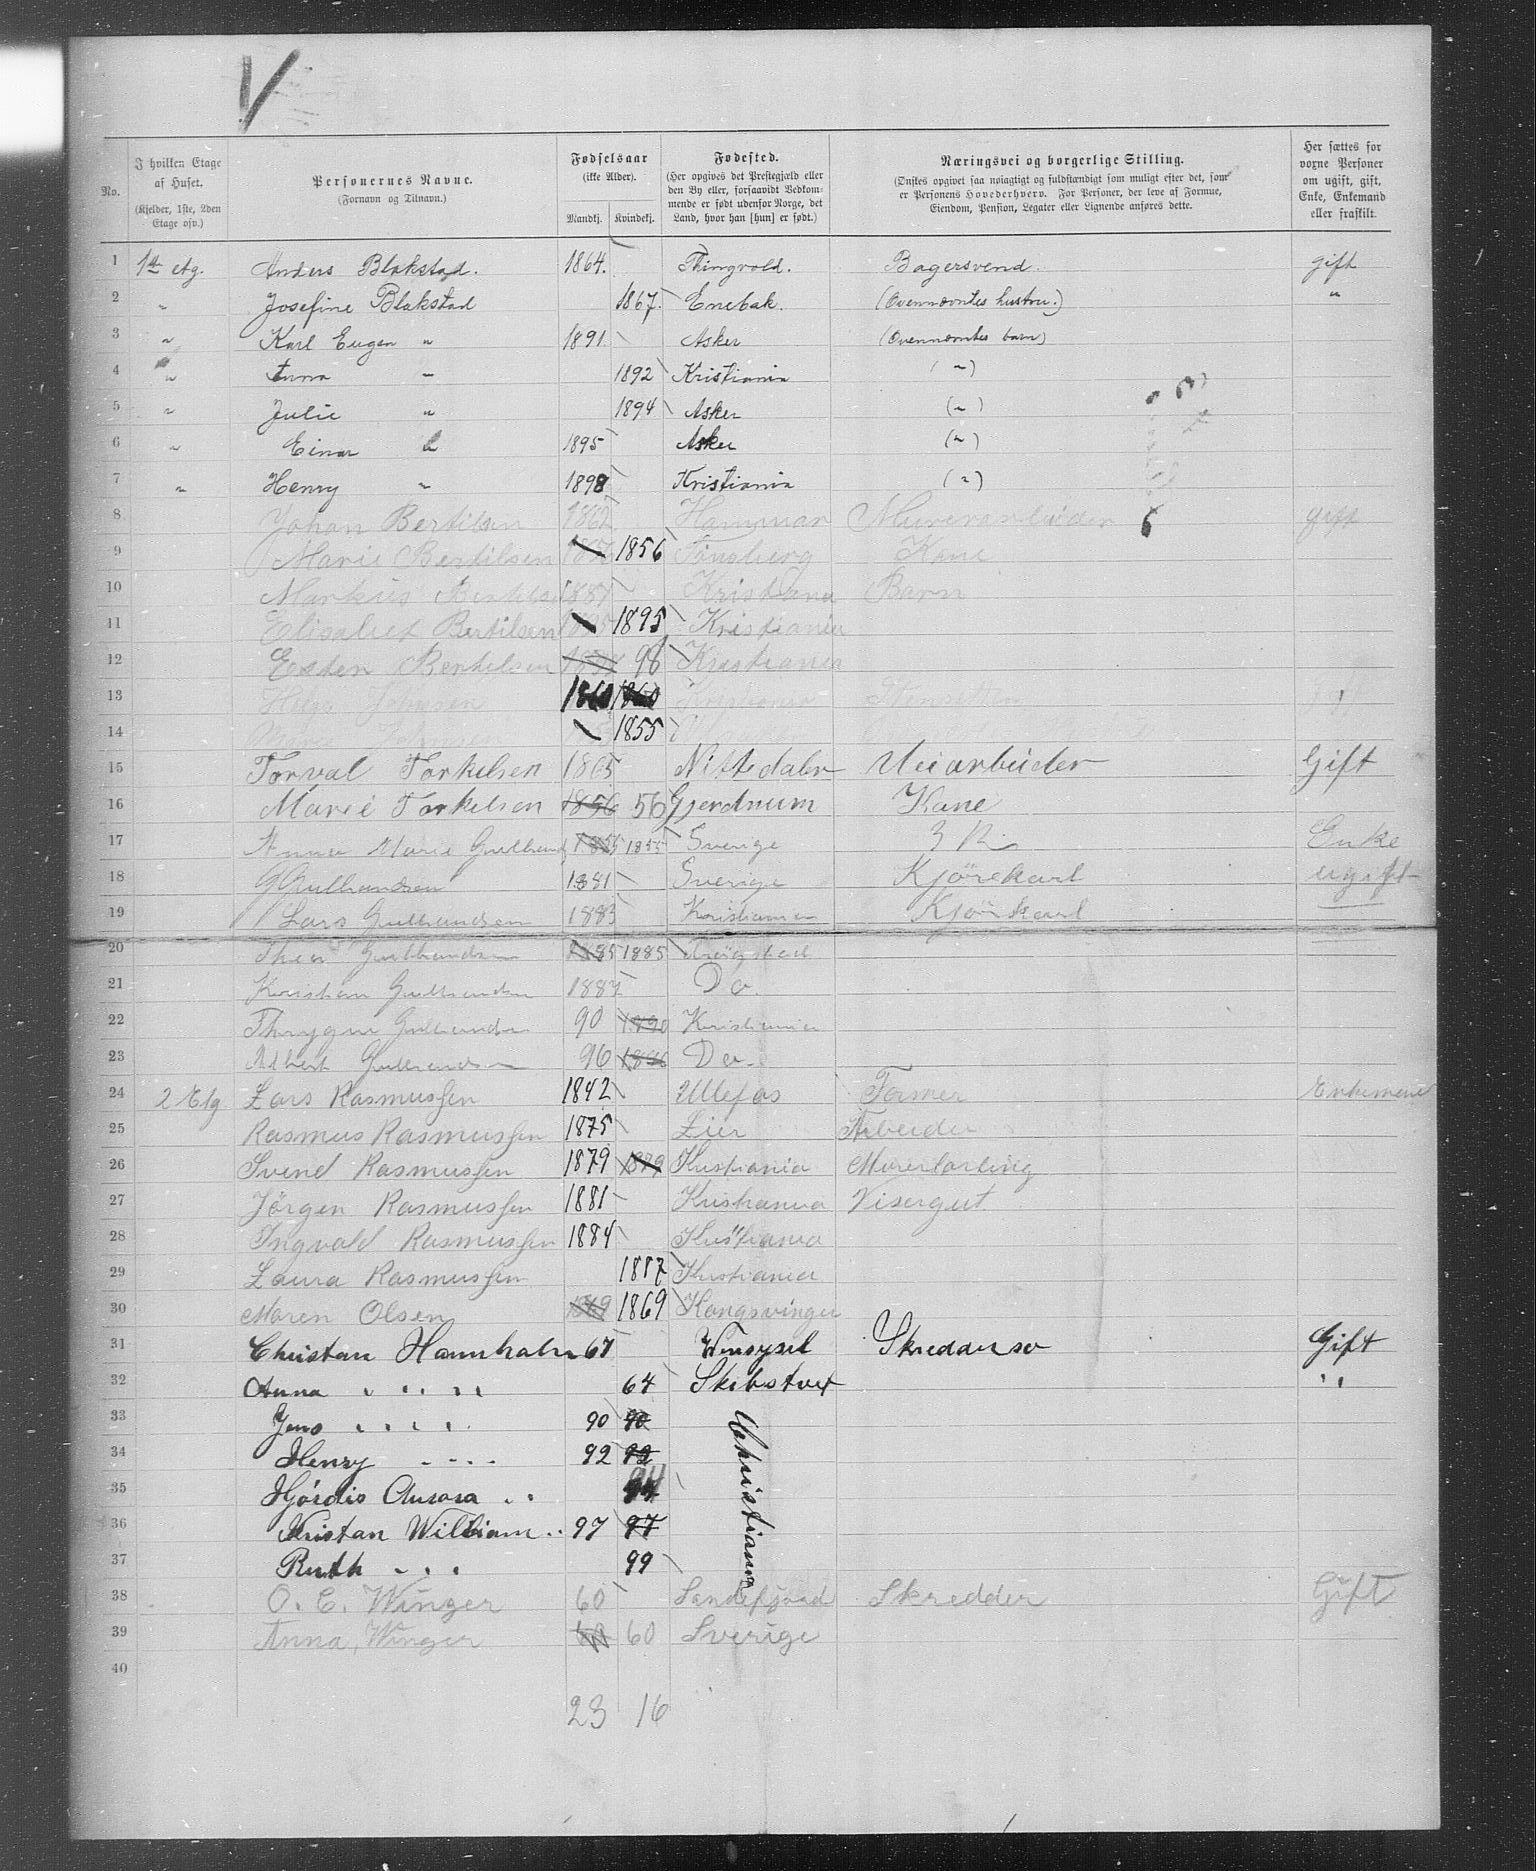 V
No. | I hvilken Etage af Huset. (Kjelder, 1ste, 2den Etage osv.) | Personernes Navne. (Fornavn og Tilnavn.) | Fødselsaar (ikke Alder). Mandkj. | Kvindekj. | Fødested. (Her opgives det Prestegjæld eller den By eller, forsaavidt Vedkommende er født udenfor Norge, det Land, hvor han [hun] er født.) | Næringsvei og borgerlige Stilling. (Ønskes opgivet saa nøiagtigt og fuldstændigt som muligt efter det, som er Personens Hovederhverv. For Personer, der leve af Formue, Eiendom, Pension, Legater eller Lignende anføres dette. | Her sættes for voxne Personer om ugift, gift, Enke, Enkemand eller fraskilt.
1 1ste Etg. Anders Blakstad. 1864. Thingvold. Bagersvend. gift
2 " Josefine Blakstad 1867. Enebak. (Ovennævntes hustru.) "
3 " Karl Eugen " 1891 Asker (Ovennævntes barn)
4 " Anna " 1892 Kristiania (")
5 " Julie " 1894 Asker (")
6 " Einar " 1895 Asker (")
7 " Henry " 1898 Kristiania (")
8 Johan Bertilsen 1862 Hammar Murerarbeider 6 gift
9 Marie Bertilsen 1856 Tønsberg Kone
10 Markus Bertelsen 1887 Kristiania Barn
11 Elisabet Bertilsen 1895 1895 Kristiania
12 Bertelsen 98 Kristiania
13 1860 1860 Kristiania
14 1855
15 Torval Torkelsen 1865 Nittedalen Veiarbeider Gift
16 Marie Torkelsen 1856 56 Gjerdrum Kone
17 Anna Marie Gulbrands 1855 1855 Sverige Enke
18 G Gulbrandsen 1881 Sverige Kjörekarl ugift
19 Lars Gulbrandsen 1883 Kristiania Kjörekarl
20 Thea Gulbrandsen 1885 1885 Kraagstad
21 Kristian Gulbrandsen 1887 Do.
22 Thrygve Gulbrandsen 90 1890 Kristiania
23 Albert Gulbrandsen 96 1896 Do.
24 2 Etg Lars Rasmussen 1842 Ullefos Former Enkemand
25 Rasmus Rasmussen 1875 Lier Arbeider
26 Svend Rasmussen 1879 1879 Kristiania Murerlærling
27 Jörgen Rasmussen 1881 Kristiania Visergut
28 Ingvald Rasmussen 1884 Kristiania
29 Laura Rasmussen 1887 Kristiania
30 Maren Olsen 1869 1869 Kongsvinger
31 Christan Hannholm 67 Wensysel Skreddersv Gift
32 Anna " " " " 64 Skibstvet "
33 Jens " " " " 90 90 Christiania
34 Henry " " " " 92 92
35 Hjórdis Aurora " " 94 94
36 Kristan William " 97 97
37 Ruth " " " 99
38 O. E. Winger 60 Sandefjord Skredder Gift
39 Anna, Winger 60 60 Sverige
40
23 16